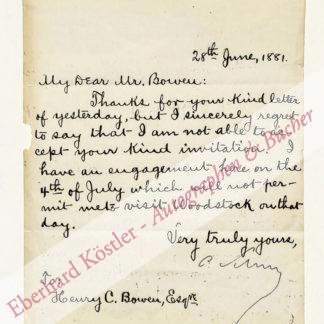 28th June, 1881.
My Dear Mr. Bowen:
Thanks for your kind letter
of yesterday, but I sincerely regret
to say that I am not able to ac-
cept your kind invitation. I
have an engagement here on the
4th of July which will not per-
mit me to visit Woodstock on that
day.
Very truly yours,
To
Henry C. Bowen, Esqre
Eberhard Köstler - Autographen & Bücher